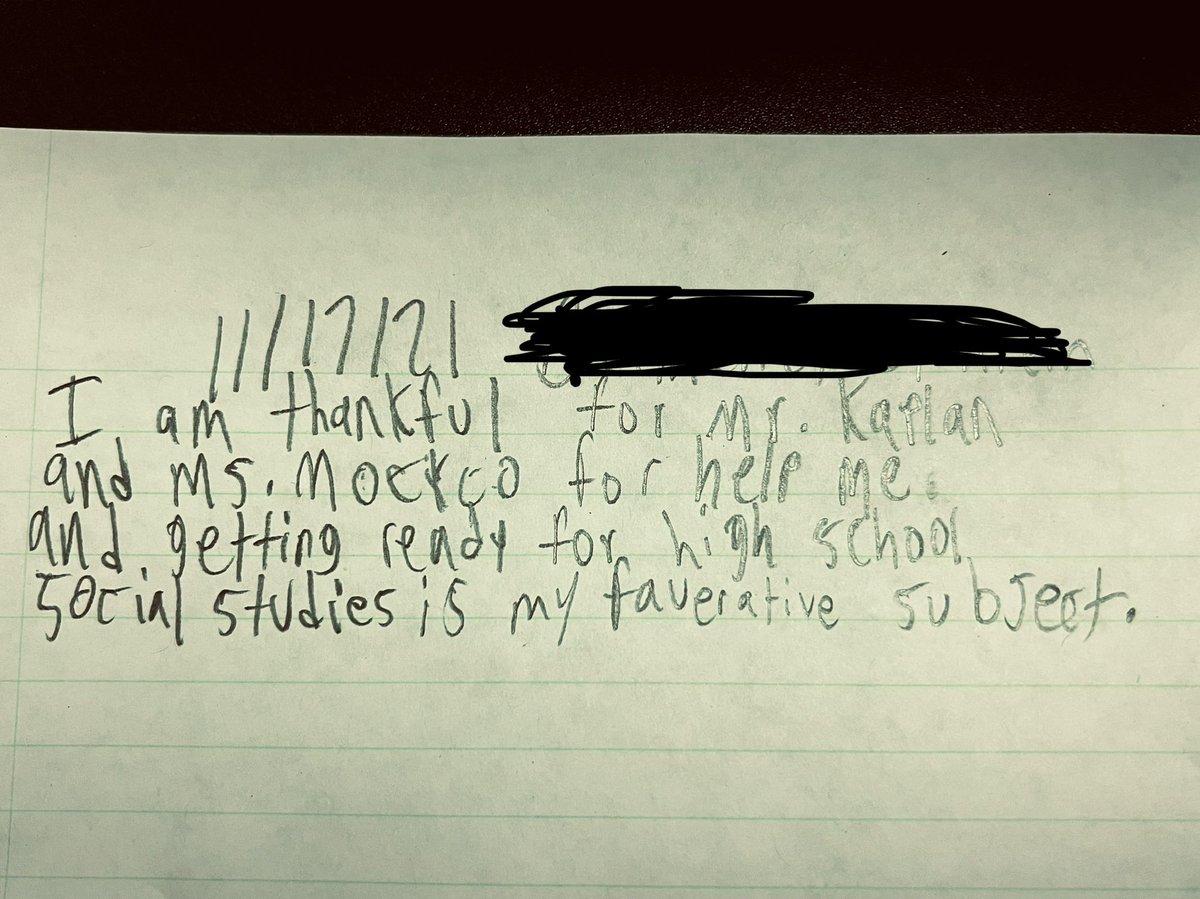 11/17/21
I am thankful for Mr. Kaplan
and ms. Mocrco for help me.
and getting ready for high school
Social studies is my faverative subject.